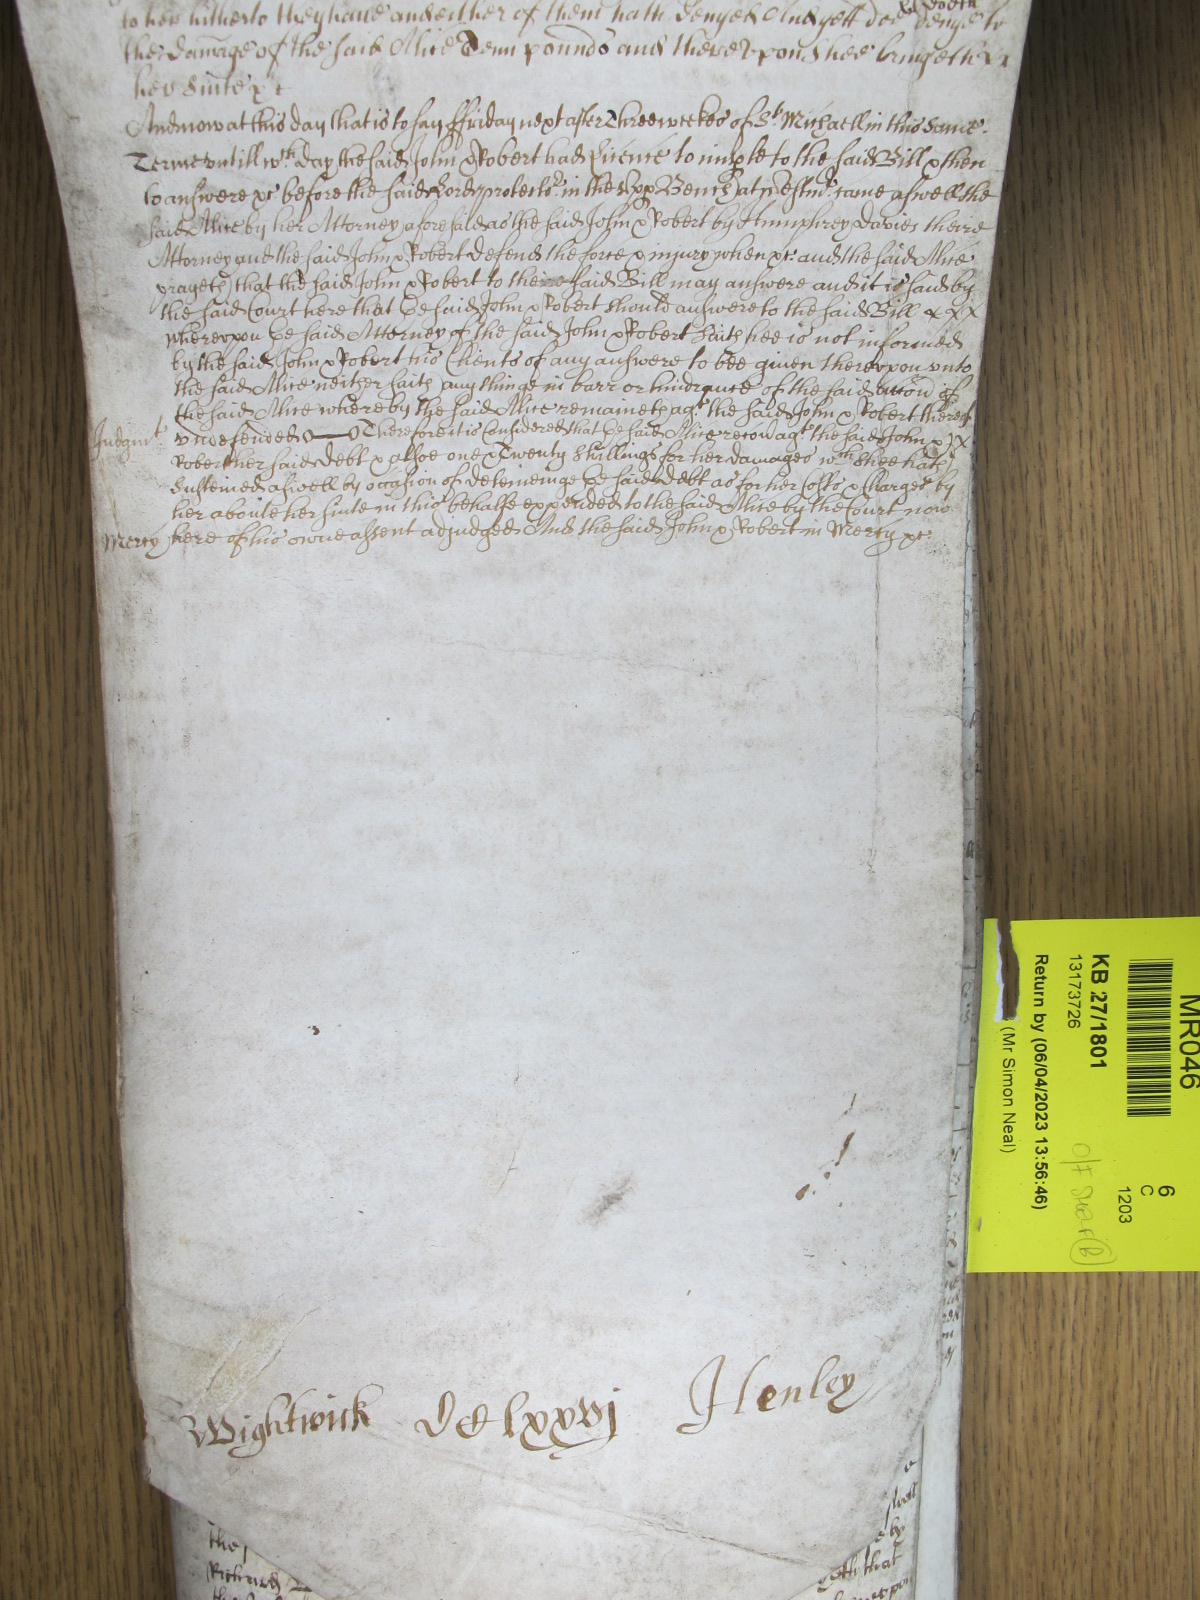 to her hitherto they have and either of them hath denyed And yett doe & doeth denye to
the damage of the said Alice Tenn pounds and therevpon shee bringeth
her suite &c
And now at this day that is to say ffriday next after Three weekes of St Michaell in this same
Terme vntill wch day the said John & Robert had licence to imple to the said Bill & then
to answere &c before the said Lord protector in the vpp Bench at Westmr came aswell the
said Alice by her Attorney aforesaid as the said John & Robert by Humphrey Davies theire
Attorney and the said John & Robert defend the force & injury when &c and the said Alice
prayeth that the said John & Robert to the said Bill may answere and it is said by
the said Court here that ye said John & Robert should answere to the said Bill
wherevpon ye said Attorney of the said John & Robert saith hee is not informed
by the said John & Robert his Clients of any answere to bee given therevpon vnto
the said Alice neither saith any thinge in barr or hindrance of the said accon of
the said Alice whereby the said Alice remaineth agt the said John & Robert thereof
Judgmt vndefended Therefore it is Considered that ye said Alice recov agt the said John &
Robert her said debt & alsoe one & Twenty shillings for her damages wch shee hath
susteined aswell by occasion of deteineinge ye said debt as for her costs & charges by
her aboute her suite in this behalfe expended to the said Alice by the Court now
Mercy here of his owne assent adjudged And the said John & Robert in Mercy &c
Wightwick DClxxvj Henley
MR046
6
C
1203
KB 27/1801
13173726
Return by (06/04/2023 13:56:46)
(Mr Simon Neal)
the
Richard
that
by
that